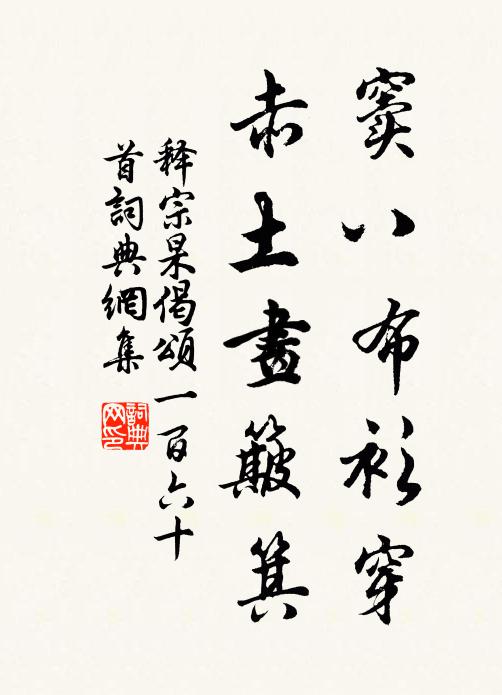 窦八布衫穿
赤土畫簸箕
释宗杲偈頌一百六十
首詞典網集
詞典网印